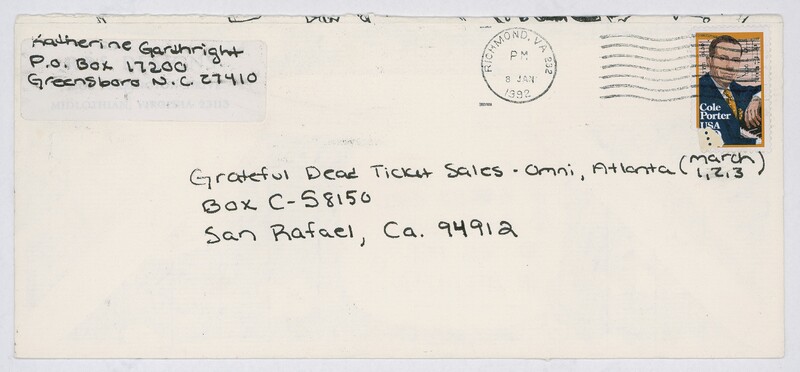 Katherine Garthright
P.O. Box 17200
Greensboro N.C 27410
RICHMOND, VA 232
PM
8 JAN
1992
Cole
Porter
USA
Grateful Dead Ticket Sales - Omni, Atlanta (March
1,2,3)
Box C-S8150
San Rafael, Ca. 94912